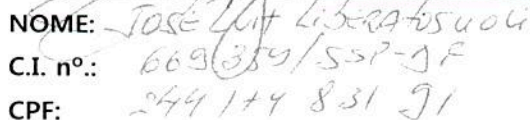 NOME: JOSE LUIT LIBERATOSUOLI
C.I. nº.: 669359/SSP-DF
CPF: 244 174 831 91